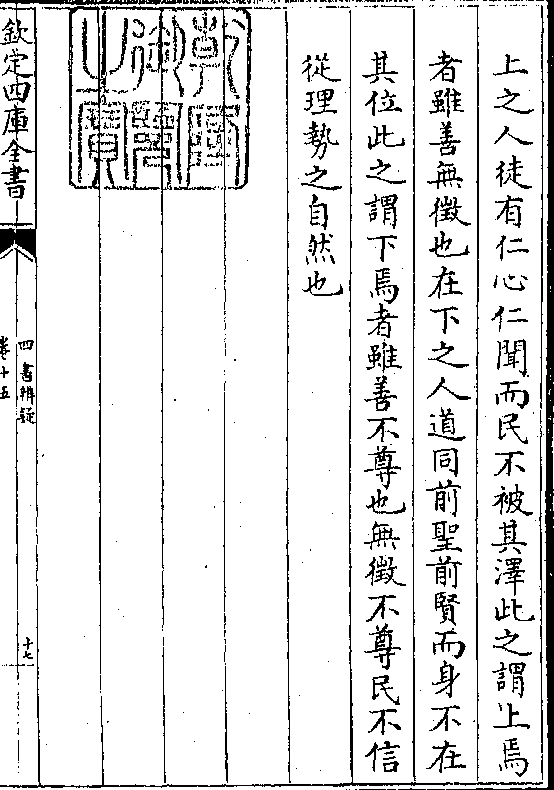 上之人徒有仁心仁聞而民不被其澤此之謂上焉
者雖善無徵也在下之人道同前聖前賢而身不在
其位此之謂下焉者雖善不尊也無徵不尊民不信
從理勢之自然也
乾隆御覽之寶
欽定四庫全書
四書辨疑
卷十五
十七